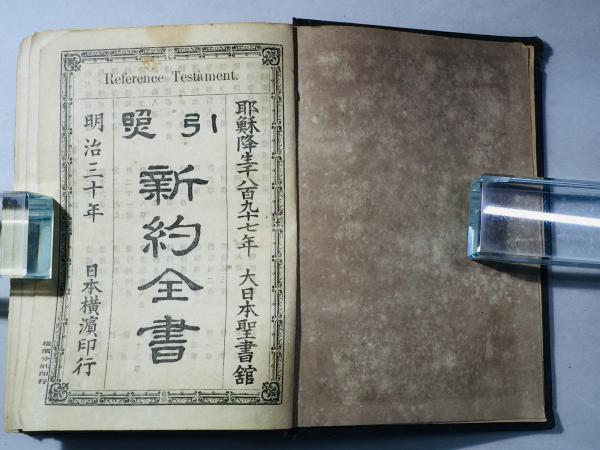 Reference Testament.
耶穌降生千八百九十七年 大日本聖書舘
引照
新約全書
明治三十年 日本橫濱印行